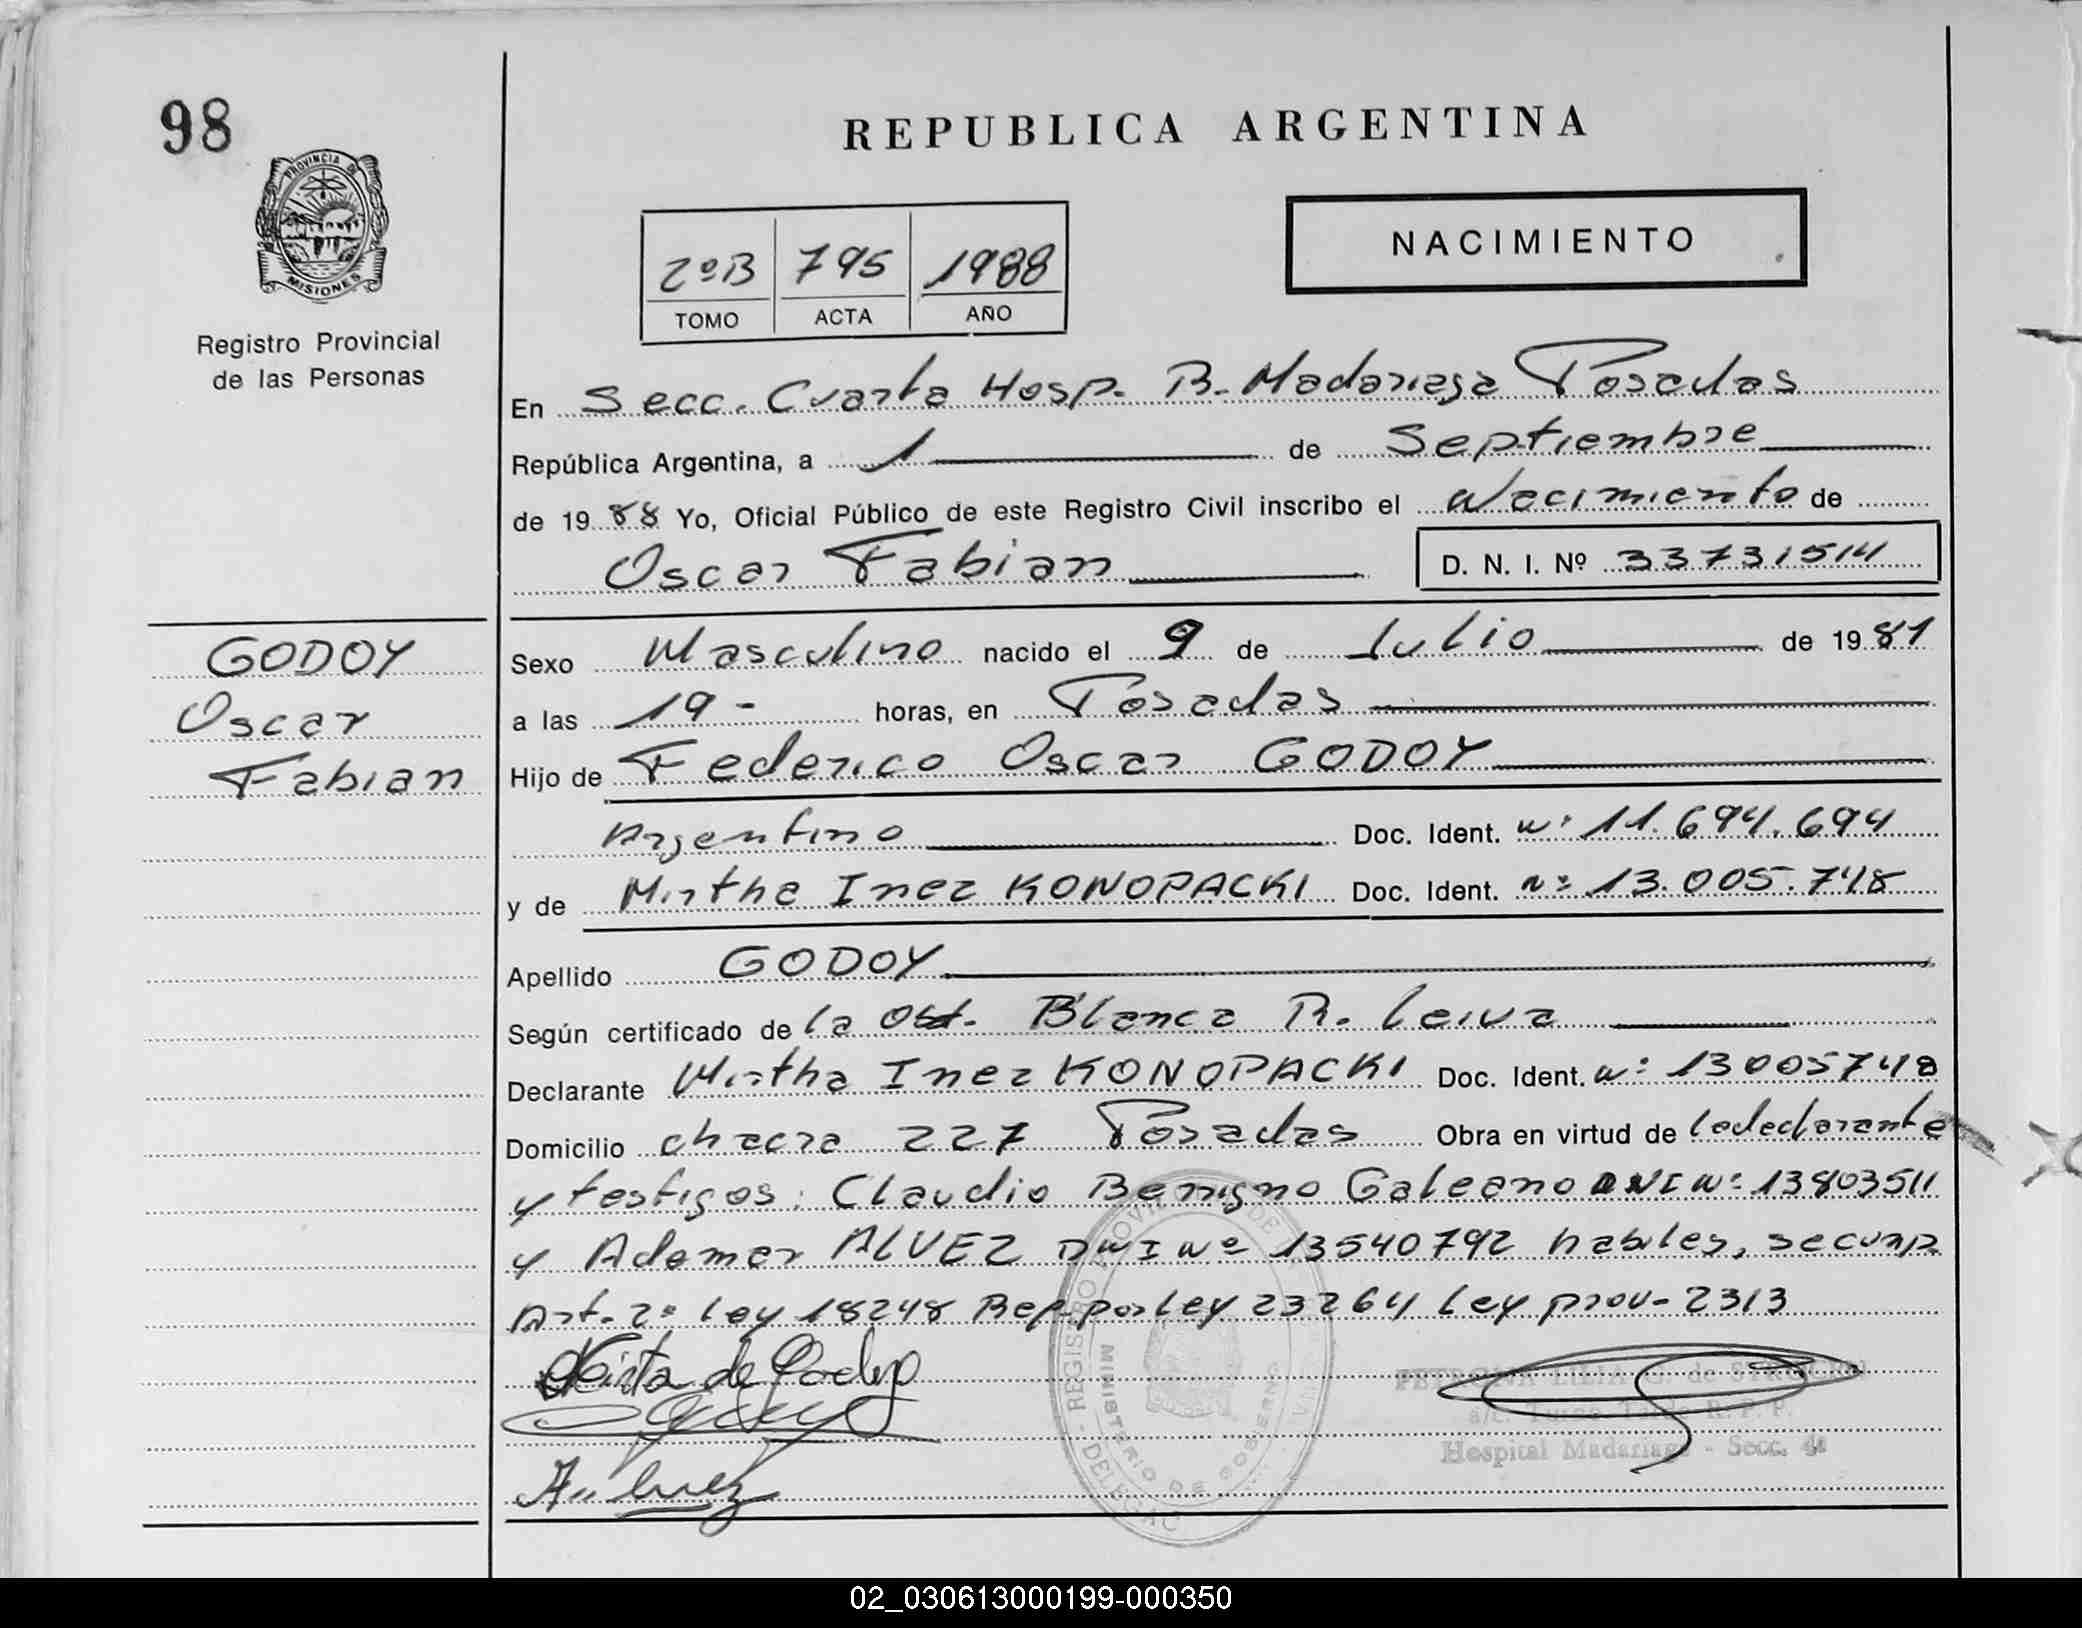 98
REPUBLICA ARGENTINA
PROVINCIA DE
MISIONES
Registro Provincial
de las Personas
NACIMIENTO
2ºB 795 1988
TOMO ACTA AÑO
En Secc. Cuarta Hosp. R. Madariaga Posadas
República Argentina, a 1 de Septiembre
de 1988 Yo, Oficial Público de este Registro Civil inscribo el Nacimiento de
Oscar Fabian D. N. I. Nº 33731514
GODOY
Oscar
Fabian
Sexo Masculino nacido el 9 de Julio de 1981
a las 19- horas, en Posadas
Hijo de Federico Oscar GODOY
Argentino Doc. Ident. nº 11.694.694
y de Mirtha Inez KONOPACKI Doc. Ident. nº 13.005.748
Apellido GODOY
Según certificado de la Obst. Blanca R. Leiva
Declarante Mirtha Inez KONOPACKI Doc. Ident. nº 13005748
Domicilio chacra 227 Posadas Obra en virtud de lo declarante
y testigos: Claudio Benigno Galeano DNI Nº 13803511
y Ademar ALVEZ DNI Nº 13540792 habiles, se cump.
Art. 2º Ley 18248 Rep. por Ley 23264 Ley prov- 2313
Mirta de Godoy
PETRONA LILIA G. de
a/c. Turno Tarde R. P. P.
Hospital Madariaga - Secc. 4a
REGISTRO PROVINCIAL DE
MINISTERIO DE GOBIERNO
02_030613000199-000350